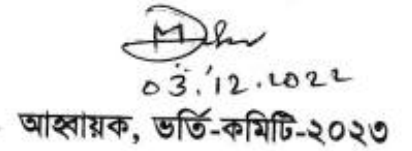 03.12.2022
আহ্বায়ক, ভর্তি-কমিটি-২০২৩